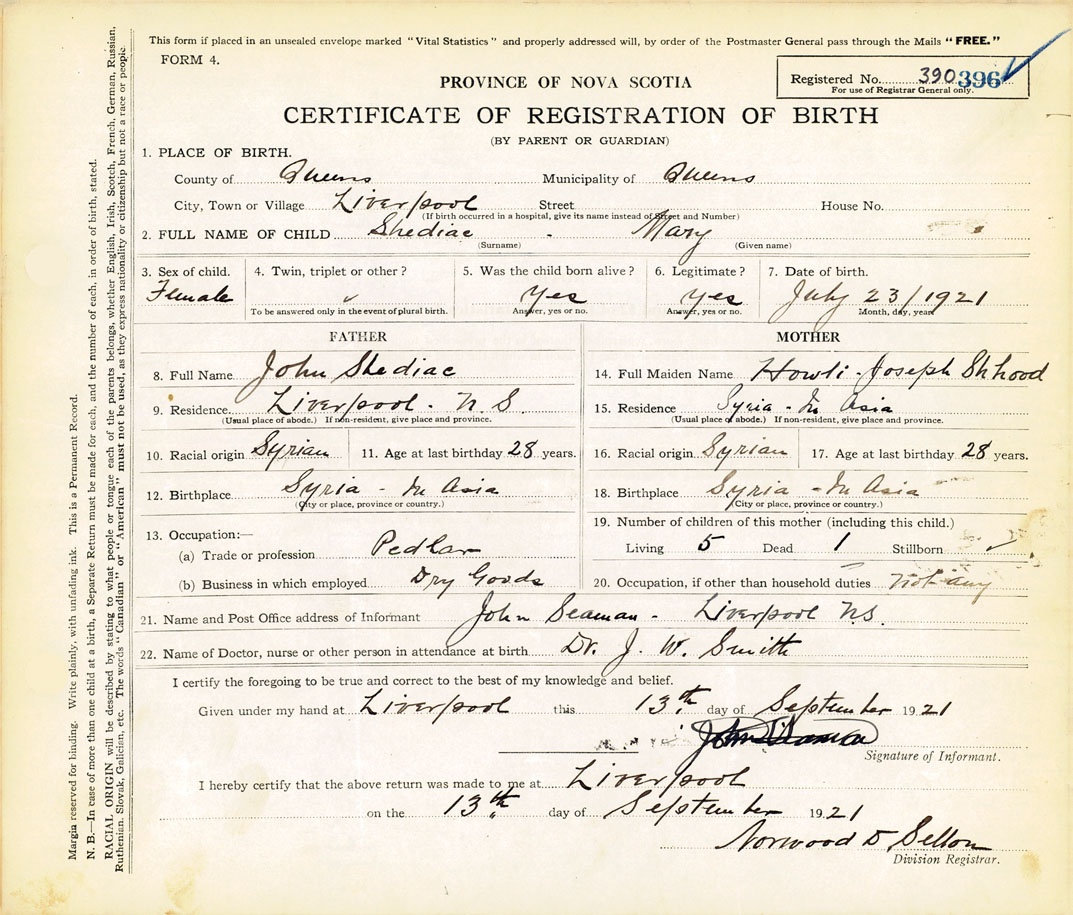 This form if placed in an unsealed envelope marked "Vital Statistics" and properly addressed will, by order of the Postmaster General pass through the Mails "FREE."
FORM 4.
Registered No. 390 396
For use of Registrar General only.
PROVINCE OF NOVA SCOTIA
CERTIFICATE OF REGISTRATION OF BIRTH
(BY PARENT OR GUARDIAN)
1. PLACE OF BIRTH.
County of Queens Municipality of Queens
City, Town or Village Liverpool Street House No.
(If birth occurred in a hospital, give its name instead of Street and Number)
2. FULL NAME OF CHILD Shediac - Mary
(Surname) (Given name)
3. Sex of child. 4. Twin, triplet or other? 5. Was the child born alive? 6. Legitimate? 7. Date of birth.
Female Yes Yes July 23/1921
To be answered only in the event of plural birth. Answer, yes or no. Answer, yes or no. Month, day, year
FATHER MOTHER
8. Full Name John Shediac 14. Full Maiden Name Howli - Joseph Shhood
9. Residence Liverpool - N.S 15. Residence Syria - In Asia
(Usual place of abode.) If non-resident, give place and province. (Usual place of abode.) If non-resident, give place and province.
10. Racial origin Syrian 11. Age at last birthday 28 years. 16. Racial origin Syrian 17. Age at last birthday 28 years.
12. Birthplace Syria - In Asia 18. Birthplace Syria - In Asia
(City or place, province or country.) (City or place, province or country.)
13. Occupation:— 19. Number of children of this mother (including this child.)
(a) Trade or profession Pedlar Living 5 Dead 1 Stillborn
(b) Business in which employed Dry Goods 20. Occupation, if other than household duties not any
21. Name and Post Office address of Informant John Seaman - Liverpool N.S.
22. Name of Doctor, nurse or other person in attendance at birth Dr. J. W. Smith
I certify the foregoing to be true and correct to the best of my knowledge and belief.
Given under my hand at Liverpool this 13th day of September 1921
John Seaman
Signature of Informant.
I hereby certify that the above return was made to me at Liverpool
on the 13th day of September 1921
Norwood D Sellon
Division Registrar.
Margin reserved for binding. Write plainly, with unfading ink. This is a Permanent Record.
N. B.—In case of more than one child at a birth, a Separate Return must be made for each, and the number of each, in order of birth, stated.
RACIAL ORIGIN will be described by stating to what people or tongue each of the parents belongs, whether English, Irish, Scotch, French, German, Russian,
Ruthenian, Slovak, Galician, etc. The words "Canadian" or "American" must not be used, as they express nationality or citizenship but not a race or people.